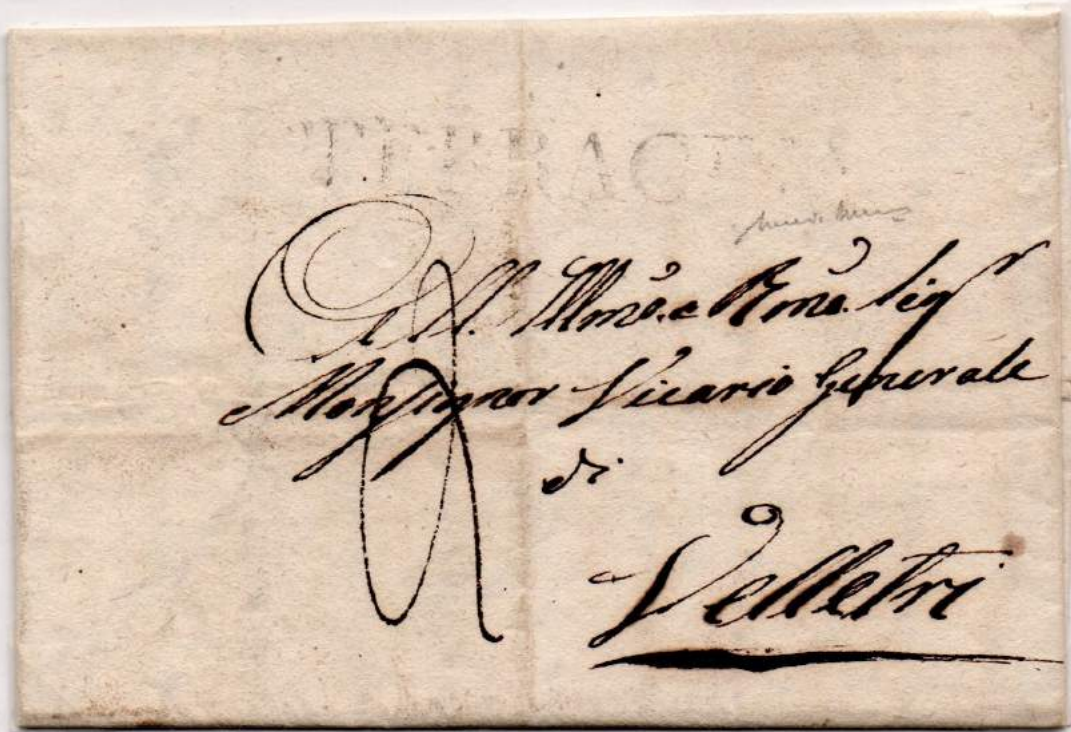 TERRACINA
All' Illmo. e Rmo. Sigr
Monsignor Vicario Generale
di
Velletri